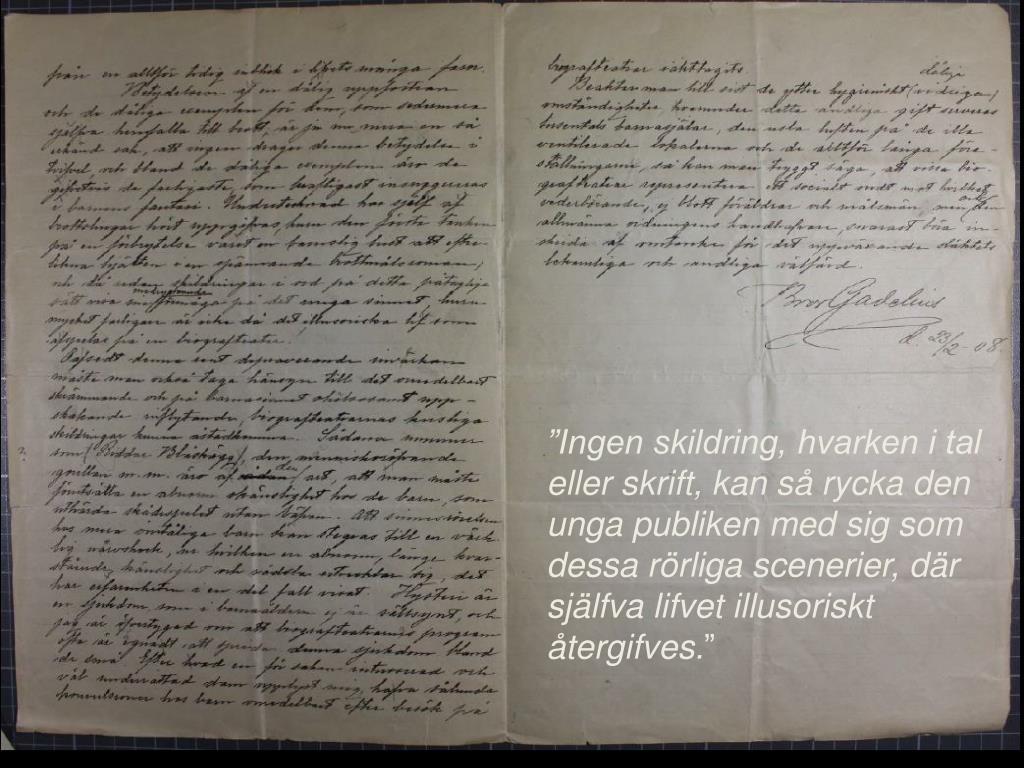 från en alltför tidig inblick i lifvets många faser.
Betydelsen af en dålig uppfostran
och de dåliga exemplen för dem, som sedermera
själfva hemfalla till brott, är ju nu mera en så
erkänd sak, att ingen drager denna betydelse i
tvifvel, och bland de dåliga exemplen äro de
de farligaste, som kraftigast insuggereras
i barnens fantasi. Undertecknad har själf af
brottslingar hört uppgifvas, hurs den första tanken
på en förbrytelse varit en barnslig lust att efter-
likna hjälten i en spännande brottmålsroman;
och då redan skildringar i ord på detta påtagliga
medryckande
sätt visa sin förmåga på det unga sinnet, huru
mycket farligare är icke då det illusoriska lif som
afspelas på en biografteater.
Afsedt denna rent depraverande inverkan
måste man också taga hänsyn till det omedelbart
skrämmande och på barnasinnet ohälsosamt upp-
skakande inflytande, biografteatrarnas hemska
skildringar kunna åstadkomma. Sådana nummer
som Riddar Blåskägg, den människoröfvande
gorillan m.m. äro af den art, att man måste
förutsätta en abnorm okänslighet hos de barn, som
uthärda skådespelet utan bäfvan. Att sinnesrörelsen
hos mera ömtåliga barn kan stegras till en verk-
lig nervchock, ur hvilken en abnorm, länge kvar-
stående känslighet och rädsla utvecklar sig, det
har erfarenheten i en del fall visat. Hysteri är
en sjukdom, som i barnaåldern ej är sällsynt, och
jag är öfvertygad om att biografteatrarnes program
ofta är egnadt att sprida denna sjukdom bland
de små. Efter hvad en för saken intresserad och
väl underrättad dam upplyst mig, hafva sålunda
konvulsioner hos barn omedelbart efter besök på
biografteater iakttagits.
dålige
Beaktar man till sist de yttre hygieniskt
omständigheter hvarunder detta andliga gift serveras
tusentals barnasjälar, den usla luften på de illa
ventilerade lokalerna och de alltför långa före-
ställningarna, så kan man tryggt säga, att vissa bio-
grafteatrar representera ett socialt ondt mot hvilket
vederbörande, ej blott föräldrar och målsmän, men
allmänna ordningens handhafvare, snarast böra in-
skrida af omtanke för det uppväxande släktets
lekamliga och andliga välfärd.
Bror Gadelius
d. 23/2-08.
”Ingen skildring, hvarken i tal
eller skrift, kan så rycka den
unga publiken med sig som
dessa rörliga scenerier, där
själfva lifvet illusoriskt
återgifves.”